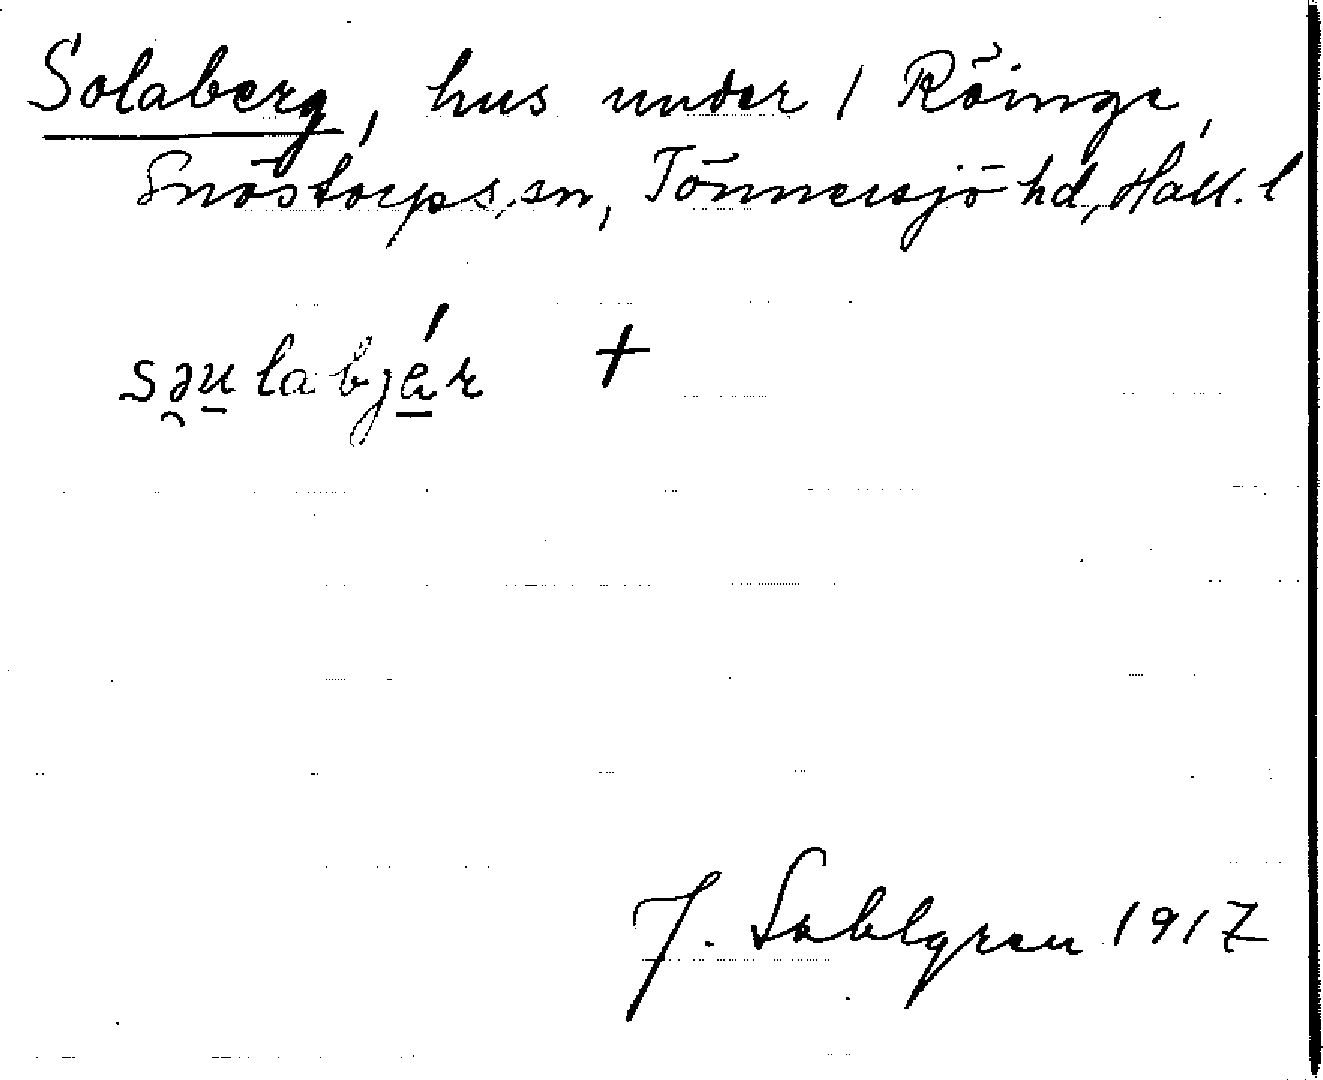 Solaberg, hus under 1 Röinge,
Snöstorps sn, Tönnersjö hd, Hall. l
səulabjár +
J. Sahlgren 1917